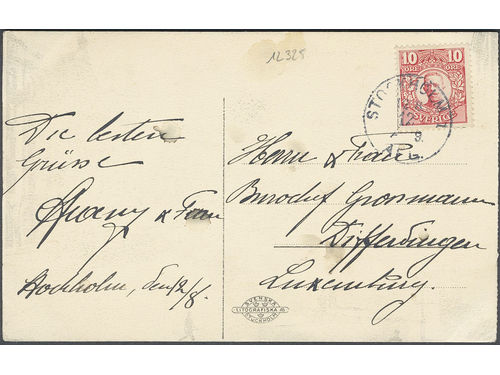 12325
10 10
ÖRE ÖRE
SVERIGE
STOCKHOLM
12
8
AFG.
Die besten
Grüsse
Franz & Frau
Stockholm, den 12/8.
Herrn & Frau
Grossmann
Differdingen
Luxemburg.
SVENSKA
LITOGRAFISKA AB
STOCKHOLM